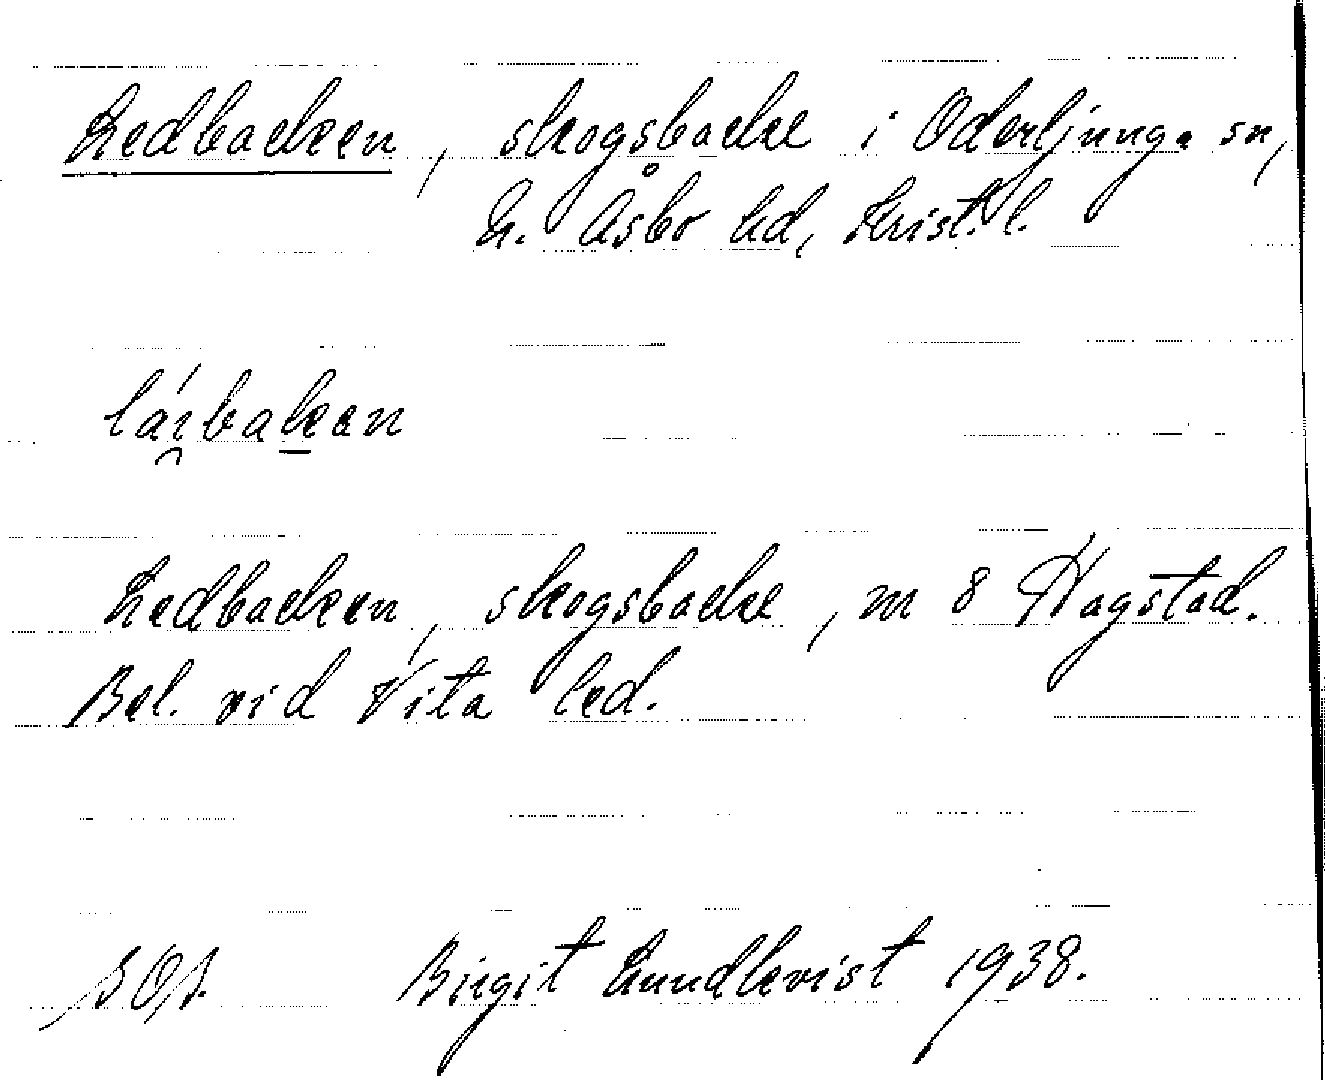 Ledbacken, skogsbacke i Oderljunga sn,
N. Åsbo hd, Krist. l.
lái̯bak̲an
Ledbacken, skogsbacke, m 8 Hagstad.
Bel. vid Vita led.
SOA. Birgit Lundkvist 1938.